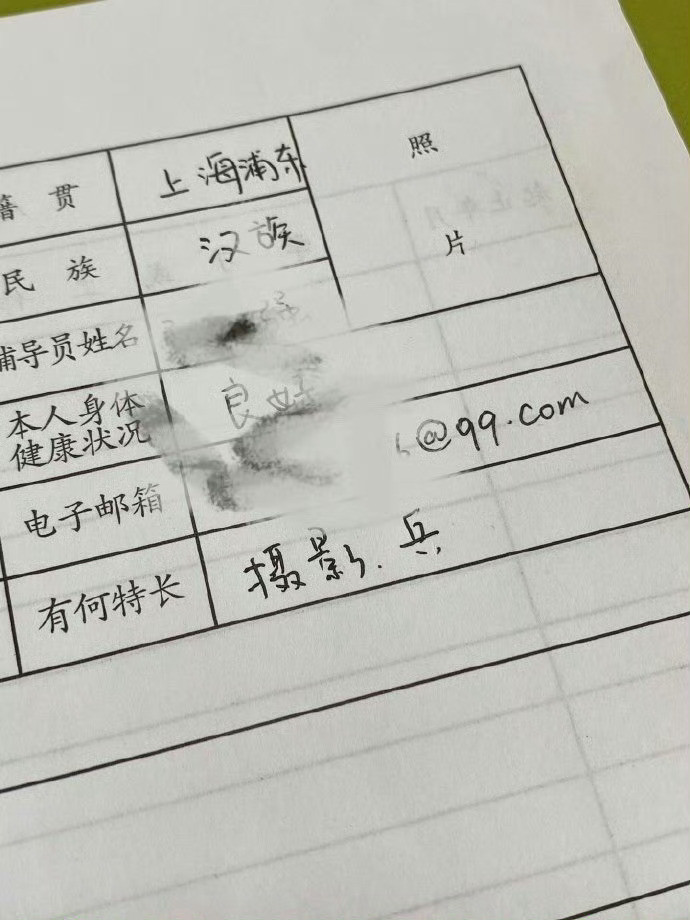 籍贯 上海浦东 照
民族 汉族 片
辅导员姓名
本人身体 良好
健康状况
@qq.com
电子邮箱
有何特长 摄影、兵